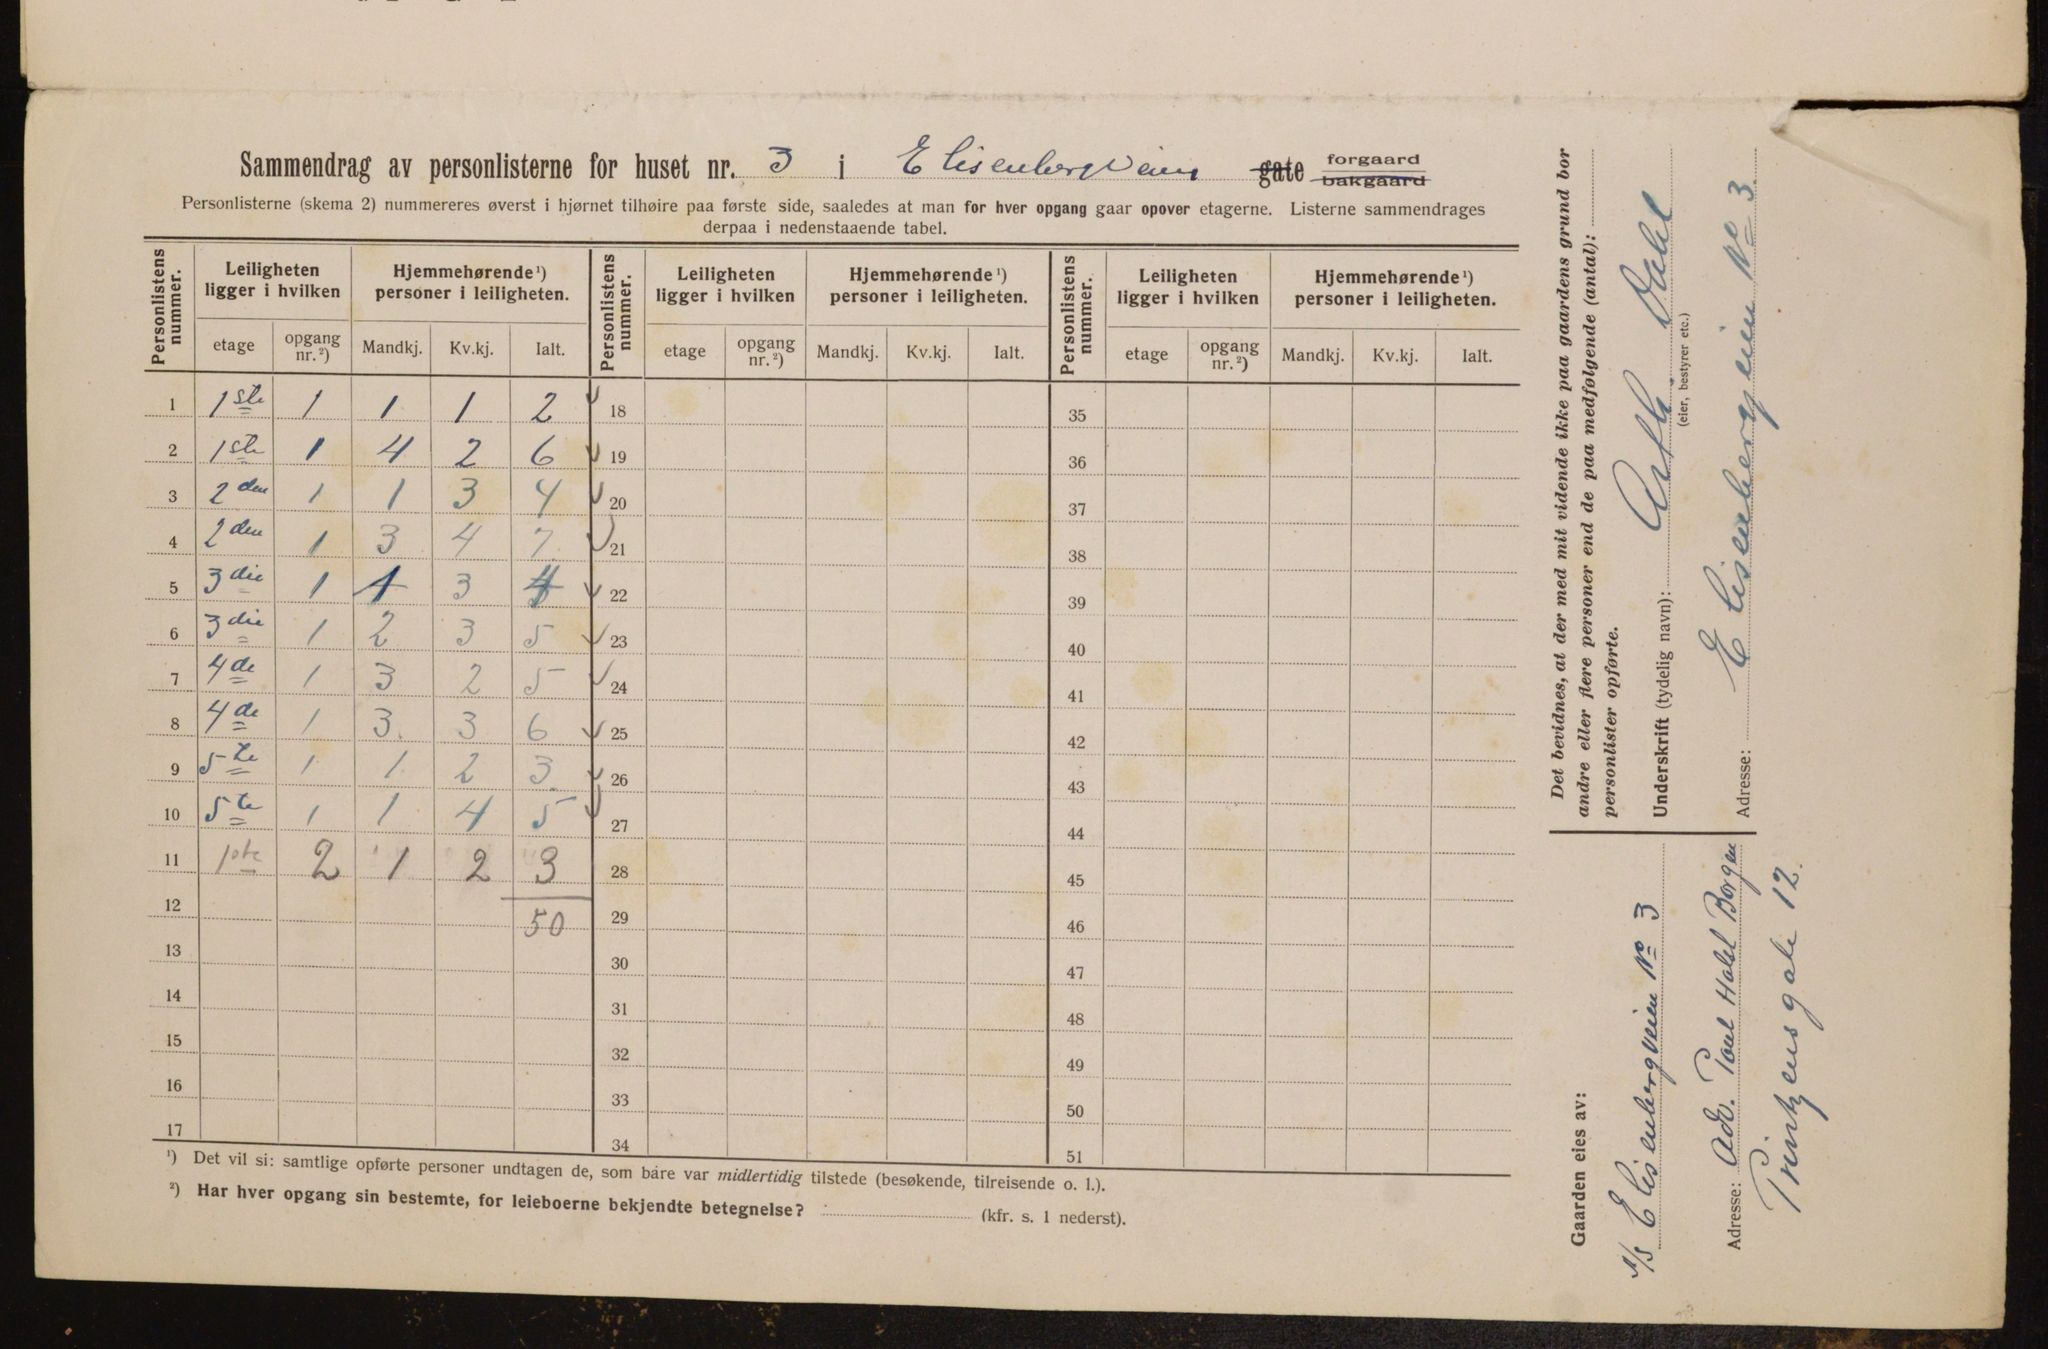 Sammendrag av personlisterne for huset nr. 3 i Elisenbergveien gate forgaard bakgaard
Personlisterne (skema 2) nummereres øverst i hjørnet tilhøire paa første side, saaledes at man for hver opgang gaar opover etagerne. Listerne sammendrages
derpaa i nedenstaaende tabel.
Personlistens nummer. Leiligheten ligger i hvilken Hjemmehørende ¹) personer i leiligheten. Personlistens nummer. Leiligheten ligger i hvilken Hjemmehørende ¹) personer i leiligheten. Personlistens nummer. Leiligheten ligger i hvilken Hjemmehørende ¹) personer i leiligheten.
etage opgang nr. ²) Mandkj. Kv.kj. Ialt. etage opgang nr. ²) Mandkj. Kv.kj. Ialt. etage opgang nr. ²) Mandkj. Kv.kj. Ialt.
1 1ste 1 1 1 2 18 35
2 1ste 1 4 2 6 19 36
3 2den 1 1 3 4 20 37
4 2den 1 3 4 7 21 38
5 3die 1 1 3 4 22 39
6 3die 1 2 3 5 23 40
7 4de 1 3 2 5 24 41
8 4de 1 3 3 6 25 42
9 5te 1 1 2 3 26 43
10 5te 1 1 4 5 27 44
11 1ste 2 1 2 3 28 45
12 50 29 46
13 30 47
14 31 48
15 32 49
16 33 50
17 34 51
¹) Det vil si: samtlige opførte personer undtagen de, som bare var midlertidig tilstede (besøkende, tilreisende o. l.).
²) Har hver opgang sin bestemte, for leieboerne bekjendte betegnelse? (kfr. s. 1 nederst).
Det bevidnes, at der med mit vidende ikke paa gaardens grund bor
andre eller flere personer end de paa medfølgende (antal):
personlister opførte.
Underskrift (tydelig navn): Dahl
(eier, bestyrer etc.)
Adresse: Elisenbergveien No 3.
Gaarden eies av:
A/S Elisenbergveien No 3
Adresse: Adv. Paul Holst Borgen
Prinsensgate 12.